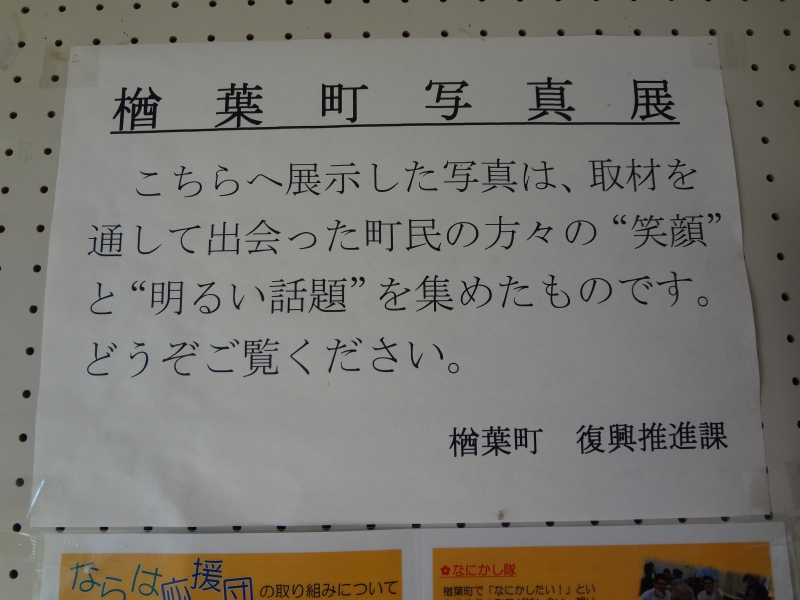 楢葉町写真展
こちらへ展示した写真は、取材を
通して出会った町民の方々の“笑顔”
と“明るい話題”を集めたものです。
どうぞご覧ください。
楢葉町　復興推進課
ならは応援団の取り組みについて
✿なにかし隊
楢葉町で「なにかしたい！」とい